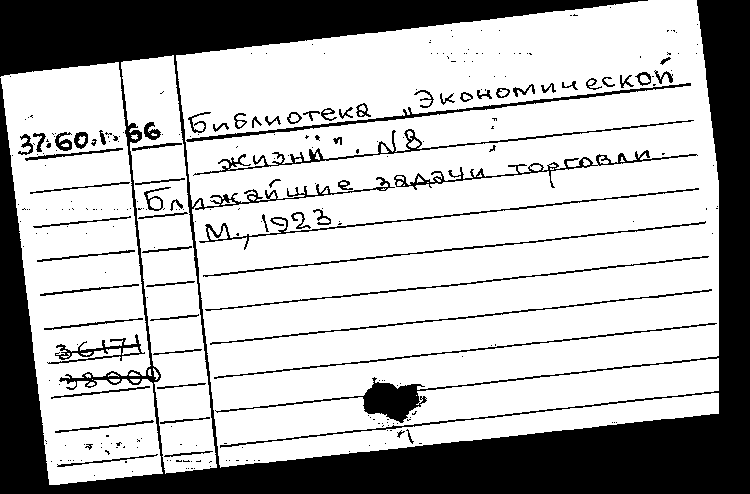 37.60.1.66 Библиотека „Экономической
жизни". N8
Ближайшие задачи торговли.
М., 1923.
36171
38000